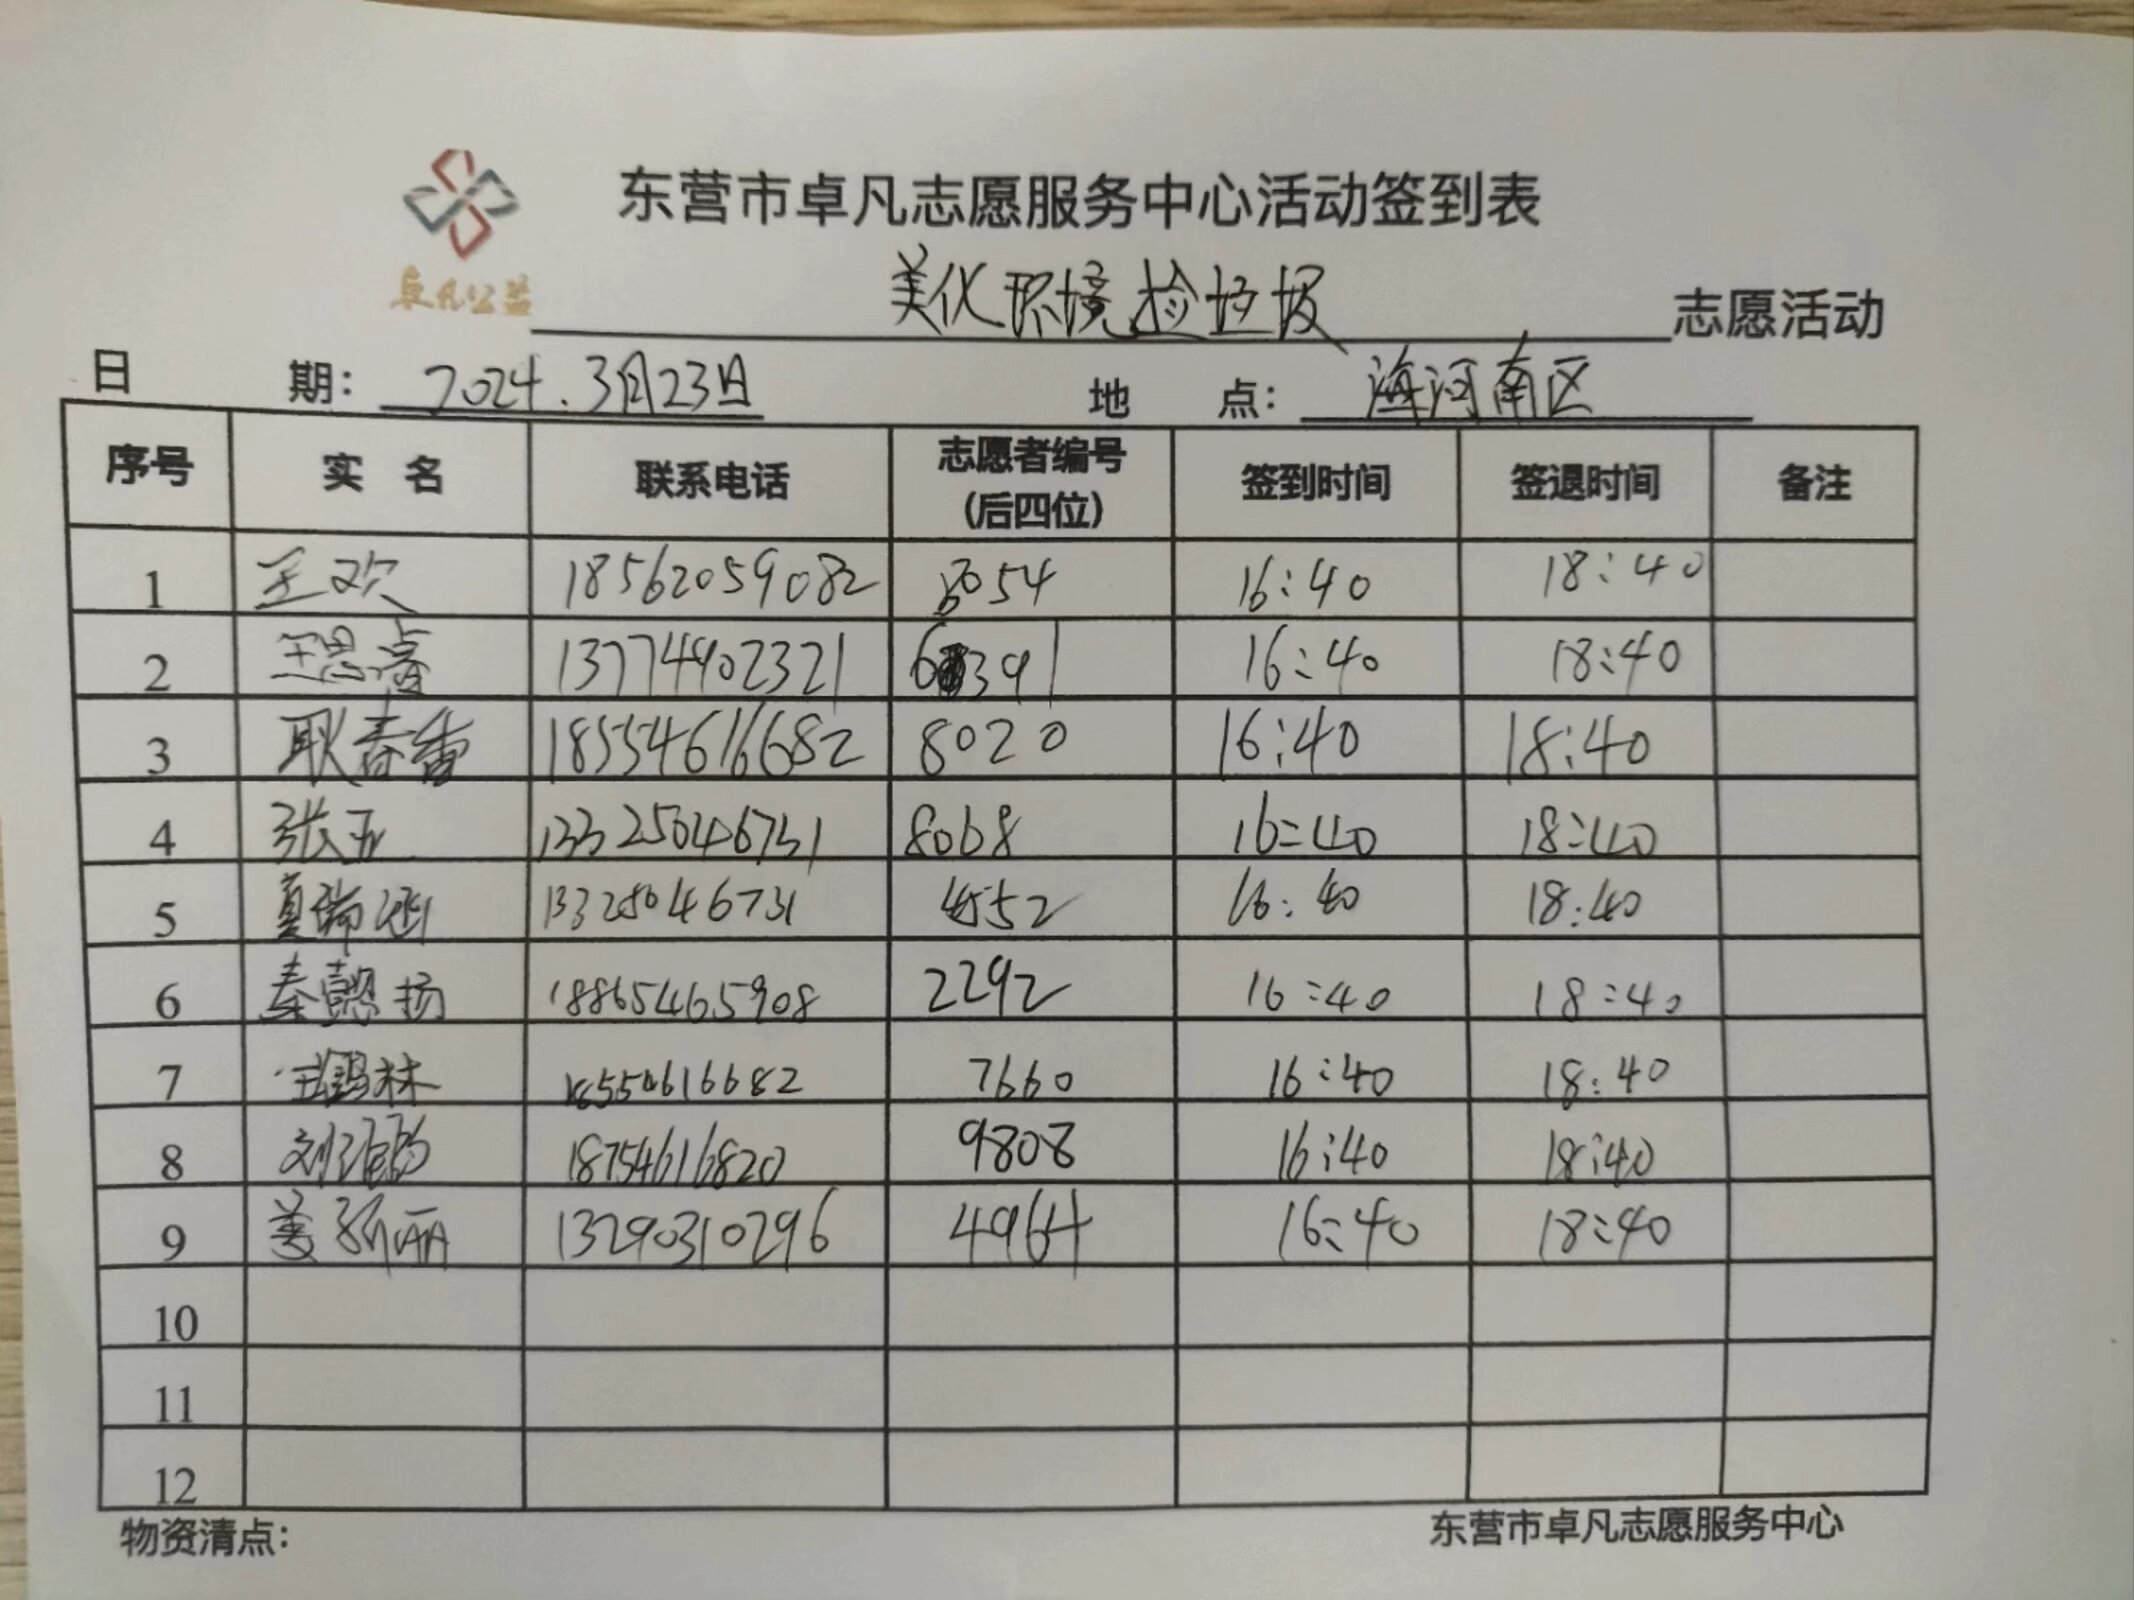 东营市卓凡志愿服务中心活动签到表
卓凡公益
美化环境捡垃圾 志愿活动
日 期： 2024.3月23日 地 点： 海河南区
序号 实 名 联系电话 志愿者编号（后四位） 签到时间 签退时间 备注
1 王欢 18562059082 054 16:40 18:40
2 13774902321 6391 16:40 18:40
3 耿春雷 18554616682 8020 16:40 18:40
4 张玉 8068 16:40 18:40
5 瑞涵 13325046731 4552 16:40 18:40
6 秦懿扬 18865465908 2292 16:40 18:40
7 林 7660 16:40 18:40
8 刘 18754616820 9808 16:40 18:40
9 姜 丽 13290310296 4964 16:40 18:40
10
11
12
物资清点： 东营市卓凡志愿服务中心